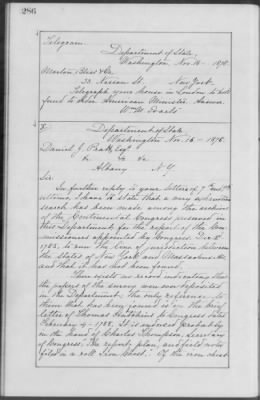 286
Telegram.
Department of State,
Washington, Nov. 16 - 1878.
Morton, Bliss & Co.
53. Nassau St. New York.
Telegraph your house in London to hold
fund to Asa American Minister
Wm M. Evarts
Department of State
Washington Nov. 16 - 1878.
Daniel J. Pratt, Esqr
&c &c &c
Albany N.Y.
Sir.
In further reply to your letter of 7th
ultimo, I have to state that a very exhaustive
search has been made among the records
of the Continental Congress preserved in
this Department for the report of the Com-
missioners appointed by Congress, Dec. 2
1785, to run the line of jurisdiction between
the States of New York and Massachusetts
and that it has not been found.
There exists no record indicating that
the papers of the survey were ever deposited
in the Department. The only reference to
them that has been found is in the brief
letter of Thomas Hutchins to Congress dated
February 4 - 1788. It is endorsed probably
in the hand of Charles Thompson, Secretary
of Congress: "The report, plan, and field notes
filed in a roll Iron chest." Of the iron chest